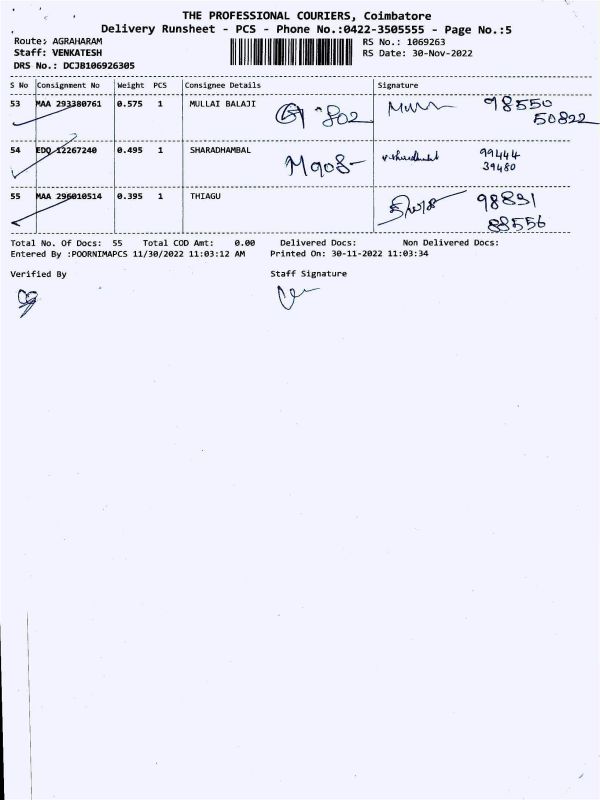 THE PROFESSIONAL COURIERS, Coimbatore
Delivery Runsheet - PCS - Phone No.:0422-3505555 - Page No.:5
Route: AGRAHARAM RS No.: 1069263
Staff: VENKATESH RS Date: 30-Nov-2022
DRS No.: DCJB106926305
S No Consignment No Weight PCS Consignee Details Signature
53 MAA 293380761 0.575 1 MULLAI BALAJI 802 98550
50822
54 EDQ 12267240 0.495 1 SHARADHAMBAL M908 99444
39480
55 MAA 296010514 0.395 1 THIAGU 98831
88556
Total No. Of Docs: 55 Total COD Amt: 0.00 Delivered Docs: Non Delivered Docs:
Entered By :POORNIMAPCS 11/30/2022 11:03:12 AM Printed On: 30-11-2022 11:03:34
Verified By Staff Signature